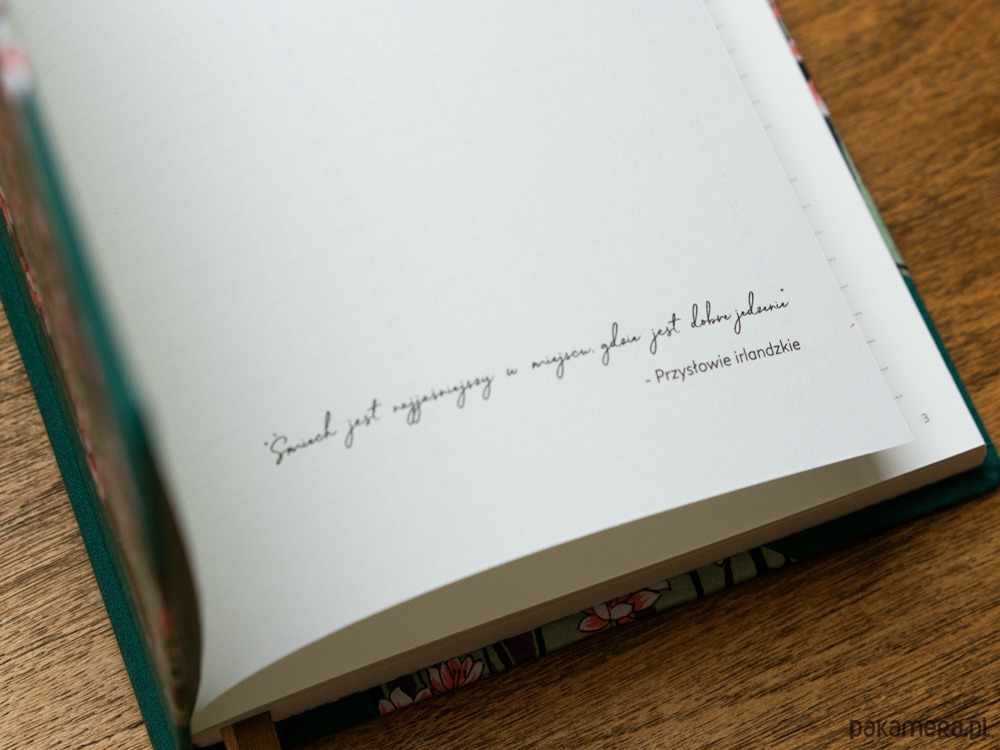 "Śmiech jest najjaśniejszy w miejscu, gdzie jest dobre jedzenie"
- Przysłowie irlandzkie
3
pakamera.pl